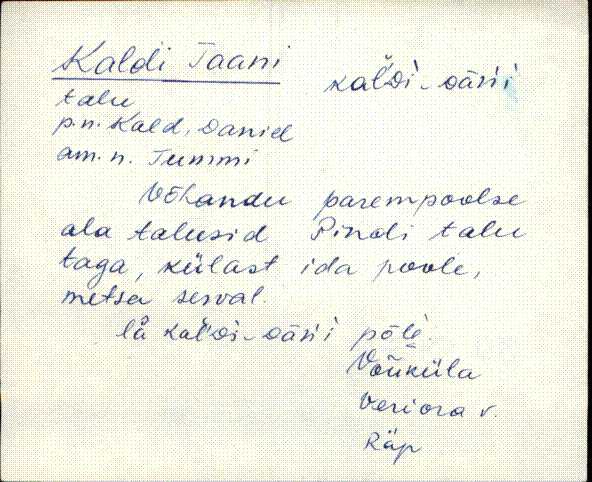 Kaldi Taani
kaĺDi-Dāńi
talu
p.n. Kald, Daniel
am. n. Tummi
Võhandu parempoolse
ala talusid Pindi talu
taga, külast ida poole,
metsa serval.
kaĺDi-Dāńi
Võuküla
Veriora v.
Räp